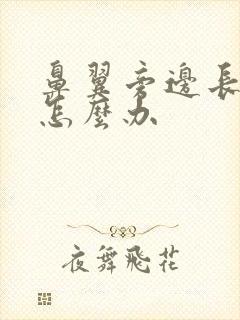 鼻翼旁邊長
怎麼办
夜舞飛花